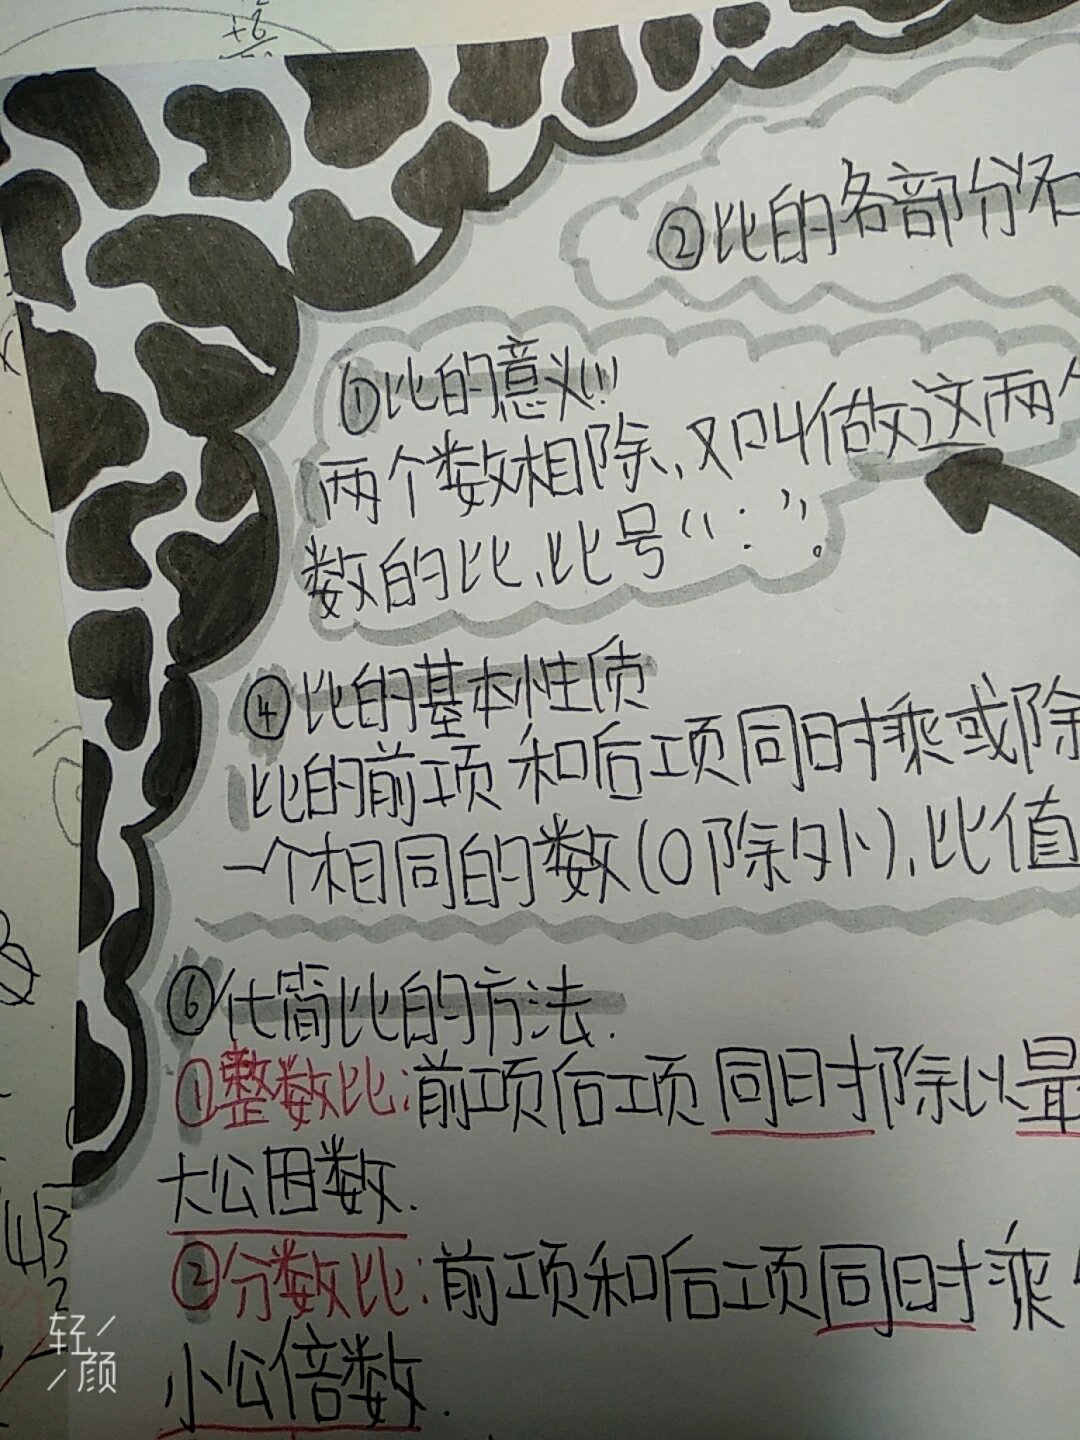 +6
②比的各部分名
①比的意义!!
两个数相除,又叫做这两个
数的比,比号“:”。
④比的基本性质
比的前项和后项同时乘或除
一个相同的数(0除外),比值
⑥化简比的方法.
①整数比:前项后项同时除以最
大公因数.
②分数比:前项和后项同时乘
小公倍数.
43
2
轻颜